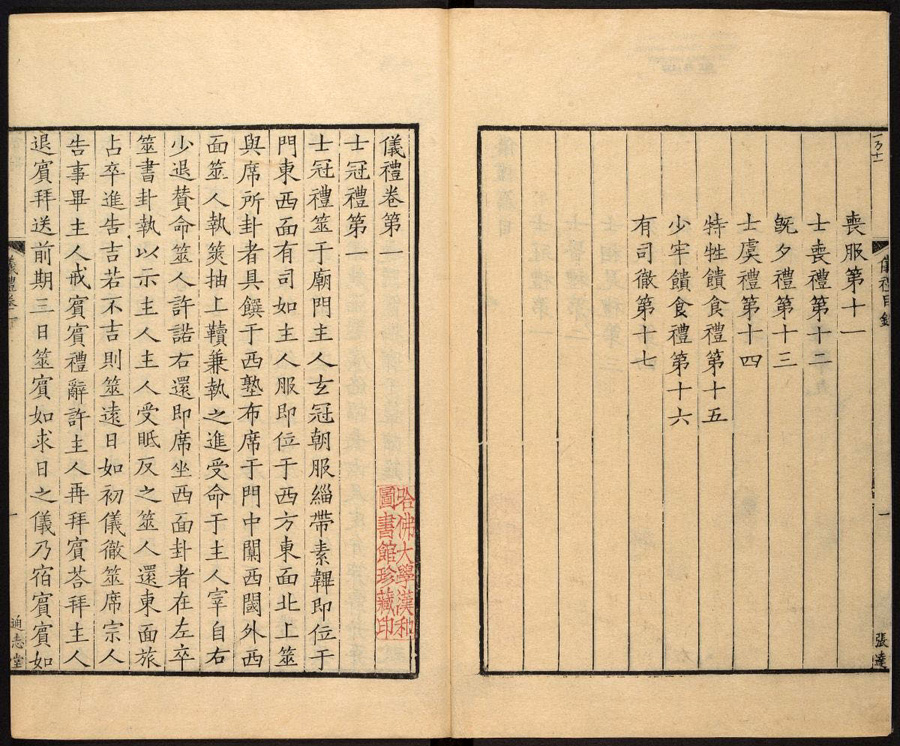 儀禮目錄
一
喪服第十一
士喪禮第十二
旣夕禮第十三
士虞禮第十四
特牲饋食禮第十五
少牢饋食禮第十六
有司徹第十七
哈佛大學漢和
圖書館珍藏印
儀禮卷第一
士冠禮第一
士冠禮筮于廟門主人玄冠朝服緇帶素韠即位于
門東西面有司如主人服即位于西方東面北上筮
與席所卦者具饌于西塾布席于門中闑西閾外西
面筮人執筴抽上韇兼執之進受命于主人宰自右
少退贊命筮人許諾右還即席坐西面卦者在左卒
筮書卦執以示主人主人受眡反之筮人還東面旅
占卒進告吉若不吉則筮遠日如初儀徹筮席宗人
告事畢主人戒賓賓禮辭許主人再拜賓荅拜主人
退賓拜送前期三日筮賓如求日之儀乃宿賓賓如
儀禮卷一
一
通志堂